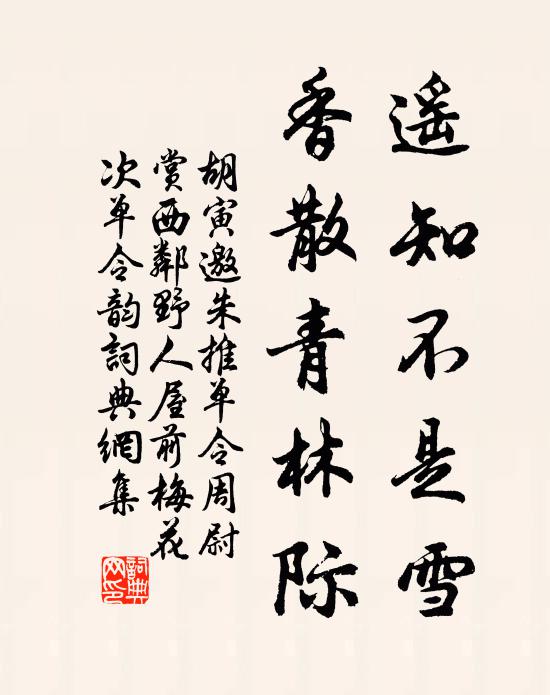 遥知不是雪
香散青林际
胡寅邀朱推单令周尉
赏西鄰野人屋前梅花
次单令韵詞典網集
詞典网印